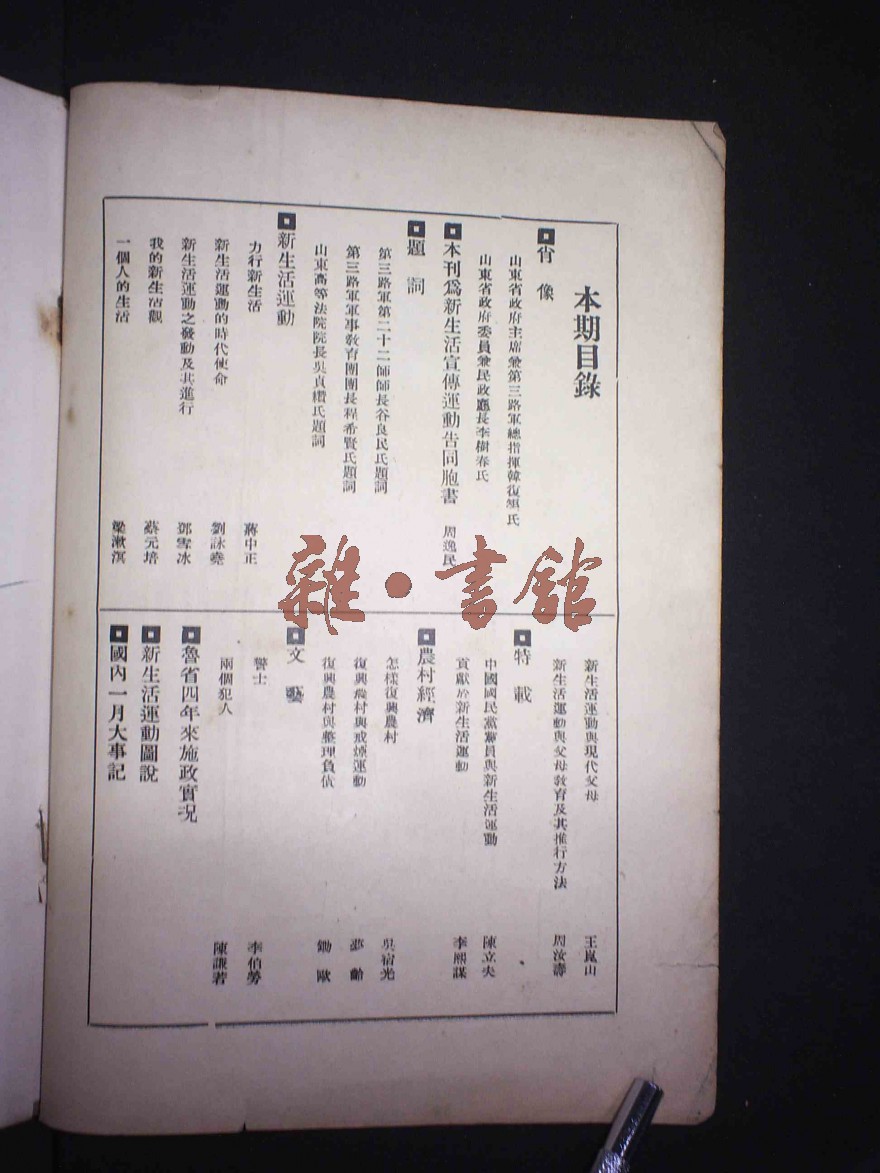 本期目錄
肖像
山東省政府主席兼第三路軍總指揮韓復榘氏
山東省政府委員兼民政廳長李樹春氏
本刊爲新生活宣傳運動告同胞書 周逸民
題詞
第三路軍第二十二師師長谷良民氏題詞
第三路軍軍事敎育團團長程希賢氏題詞
山東高等法院院長吳貞纘氏題詞
新生活運動
力行新生活 蔣中正
新生活運動的時代使命 劉詠堯
新生活運動之發動及其進行 鄧雪冰
我的新生活觀 蔡元培
一個人的生活 梁漱溟
新生活運動與現代父母 王崑山
新生活運動與父母敎育及其推行方法 周汝壽
特載
中國國民黨黨員與新生活運動 陳立夫
貢獻於新生活運動 李熙謀
農村經濟
怎樣復興農村 吳宿光
復興農村與戒煙運動 夢齡
復興農村與整理負債 鋤歐
文藝
警士 李伯勞
兩個犯人 陳謙若
魯省四年來施政實况
新生活運動圖說
國內一月大事記
雜·書館